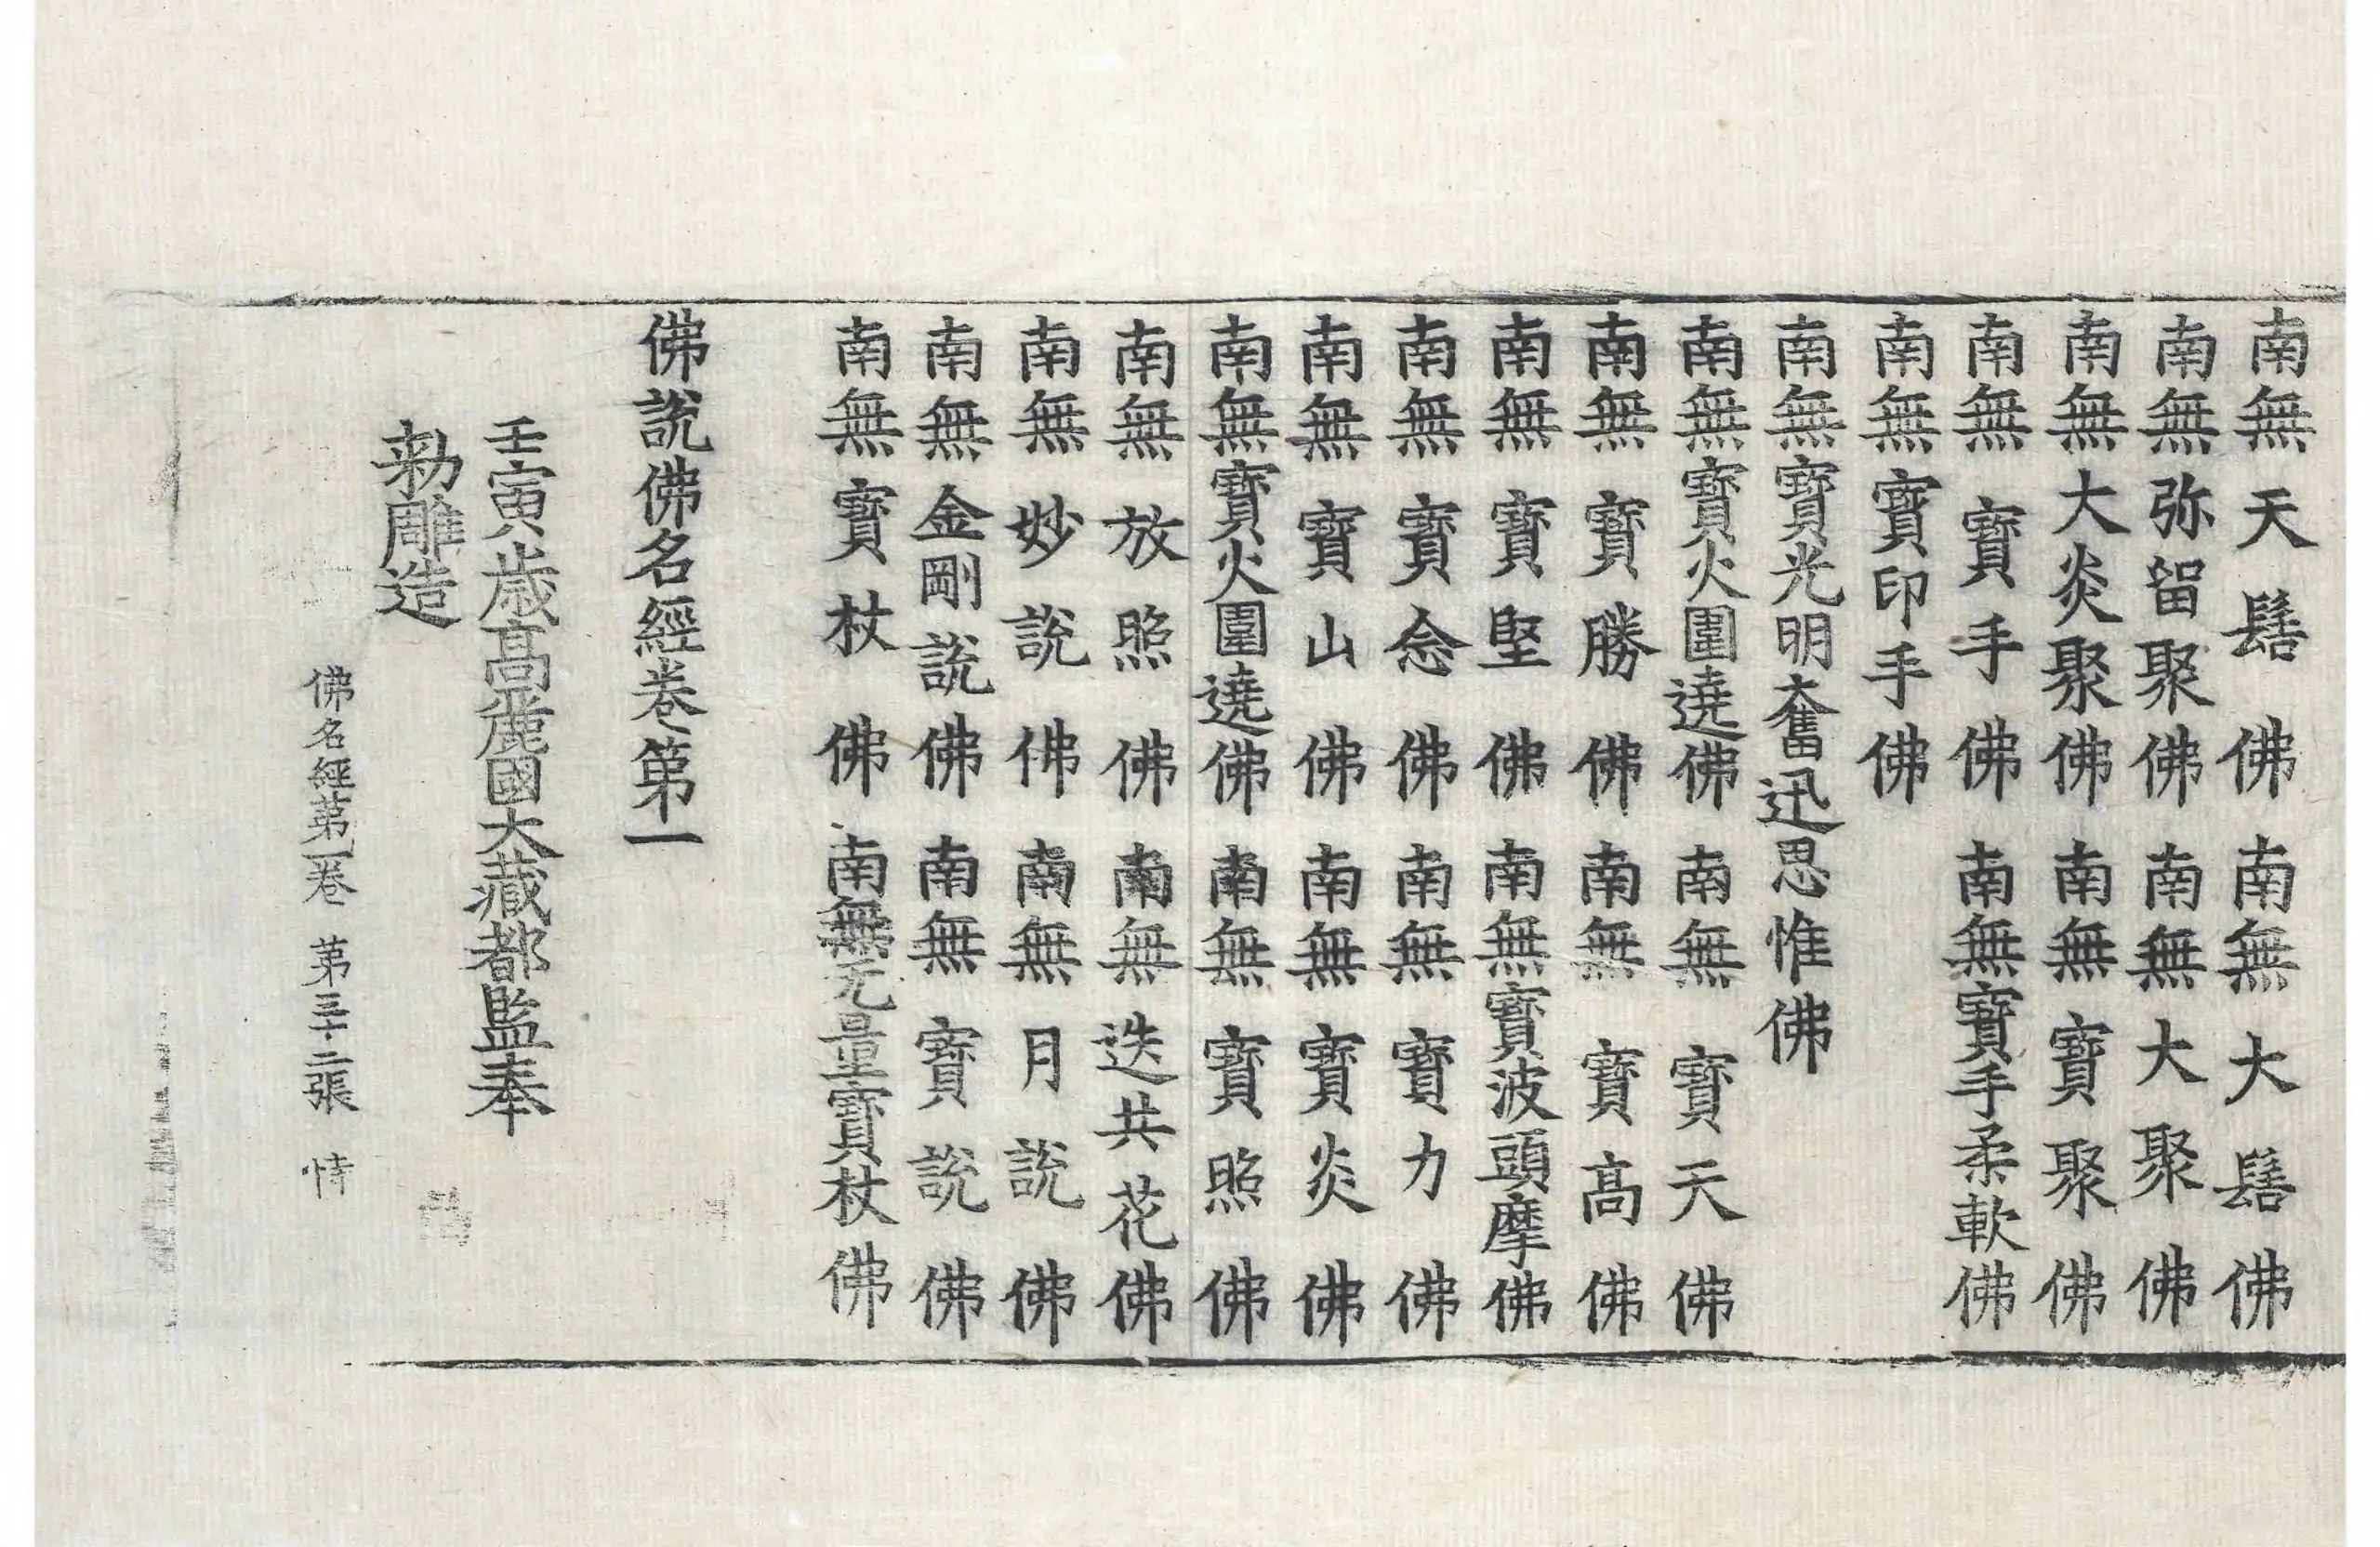 南無天髻佛 南無大髻佛
南無弥留聚佛 南無大聚佛
南無大炎聚佛 南無寶聚佛
南無寶手佛 南無寶手柔軟佛
南無寶印手佛
南無寶光明奮迅思惟佛
南無寶火圍遶佛 南無寶天佛
南無寶勝佛 南無寶高佛
南無寶堅佛 南無寶波頭摩佛
南無寶念佛 南無寶力佛
南無寶山佛 南無寶炎佛
南無寶火圍遶佛 南無寶照佛
南無放照佛 南無迭共花佛
南無妙說佛 南無月說佛
南無金剛說佛 南無寶說佛
南無寶杖佛 南無无量寶杖佛
佛說佛名經卷第一
壬寅歲高麗國大藏都監奉
勑雕造
佛名經第一卷 第三十二張 恃